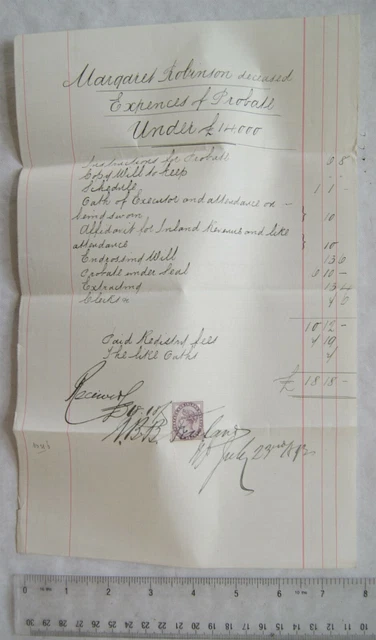 Margaret Robinson deceased
Expences of Probate
Under £14000
Instructions for Probate
Copy Will to keep
Schedule 1 1 -
Oath of Executor and attendance on
being sworn 10
Affidavit for Inland Revenue and like
attendance 10
Engrossing Will 13 6
Probate under Seal
Extracting 13 4
Clerks
10 12 -
Paid Registry fees 4 19
The like Oaths
£ 18 18 -
Received
July 23rd
0 1 2 3 4 5 6 7 8
30 29 28 27 26 25 24 23 22 21 20 19 18 17 16 15 14 13 12 11 10